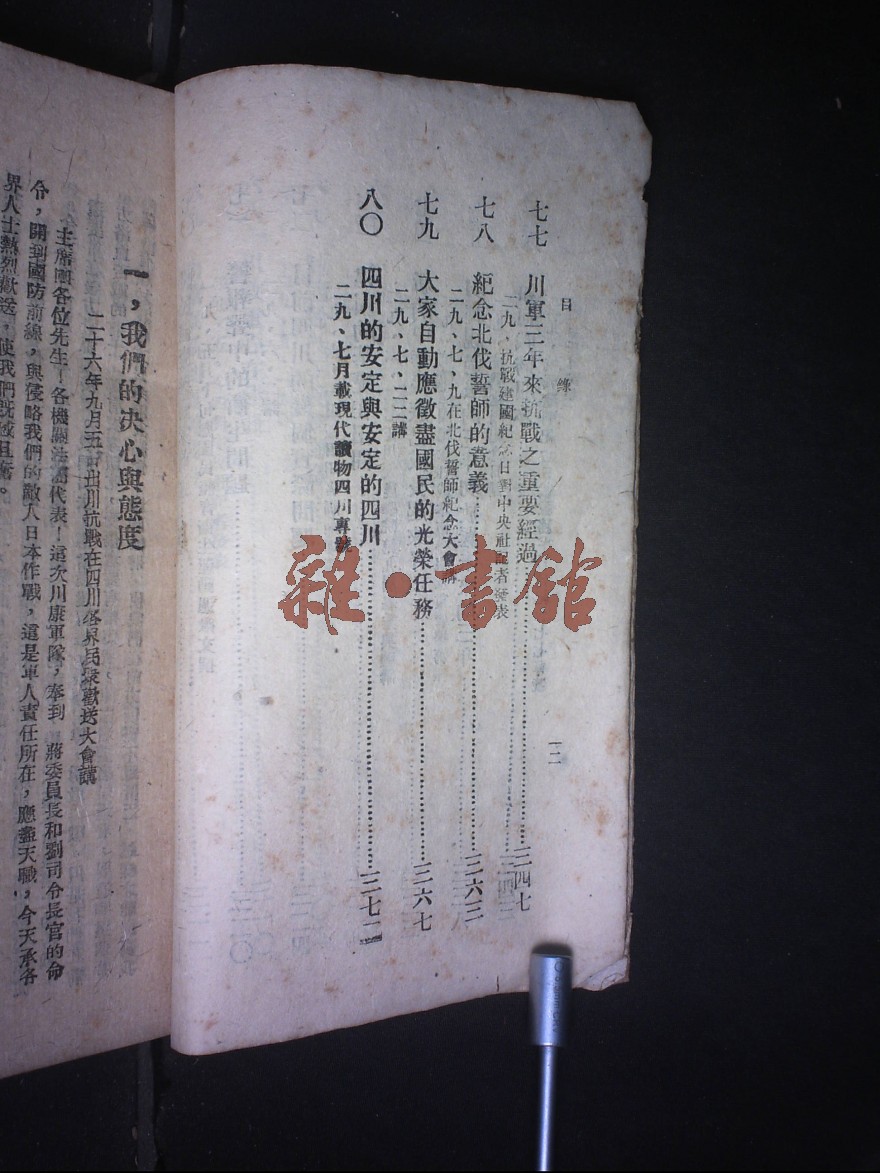 目錄
一二
七七 川軍三年來抗戰之重要經過……三四七
二九、抗戰建國紀念日對中央社記者發表
七八 紀念北伐誓師的意義……三六三
二九、七、九在北伐誓師紀念大會講
七九 大家自動應徵盡國民的光榮任務……三六七
二九、七、二二講
八〇 四川的安定與安定的四川……三七二
二九、七月載現代讀物四川專號
一，我們的決心與態度
二十六年九月五日出川抗戰在四川各界民眾歡送大會講
主席團各位先生！各機關法團代表！這次川康軍隊，奉到 蔣委員長和劉司令長官的命
令，開到國防前線，與侵略我們的敵人日本作戰，這是軍人責任所在，應盡天職，今天承各
界人士熱烈歡送，使我們既感且奮。
雜·書館